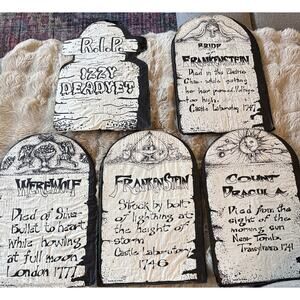 R.I.P.
IZZY
DEADYET
BRIDE
OF
FRANKENSTEIN
Died in the Electric
Chair while getting
her hair permed. Voltage
too high.
Castle Laboratory 1747
WEREWOLF
Died of Silver
Bullet to heart
while howling
at full moon
London 1777
FRANKENSTEIN
Struck by bolt
of lightning at
the height of
storm
Castle Laboratory
1746
COUNT
DRACULA
Died from the
sight of the
morning sun
New Tombs
Transylvania 1741